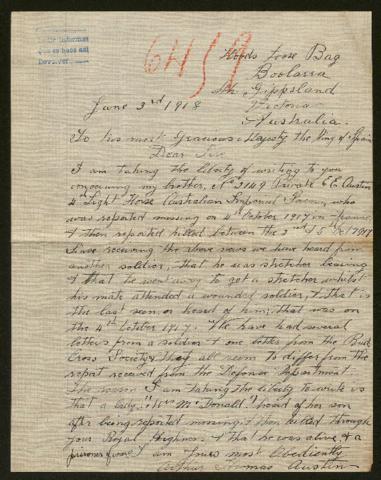 6415 9
Woods Loose Bag
Boolarra
Sth Gippsland
Victoria
Australia.
June 3rd 1918
To his most Gracious Majesty the King of Spain
Dear Sir
I am taking the liberty of writing to you
concerning my brother, No 3149 Private E E. Austin
4th Light Horse Australian Imperial Forces, who
was reported missing on 4th October 1917 in
& then reported killed between the 3rd & 5 Oct 1917
Since receiving the above news we have heard from
another soldier, that he was stretcher bearing
& that he went away to get a stretcher whilst
his mate attended a wounded soldier, & that is
the last seen or heard of him, that was on
the 4th October 1917. We have had several
letters from a soldier & one letter from the Red
Cross Society & they all seem to differ from the
report received from the Defence Department.
The reason I am taking the liberty to write is
that a lady "Mrs McDonald" heard of her son
after being reported missing & then killed through
your Royal Highness & that he was alive & a
prisoner of war, I am Yours most Obediently
Arthur Thomas Austin